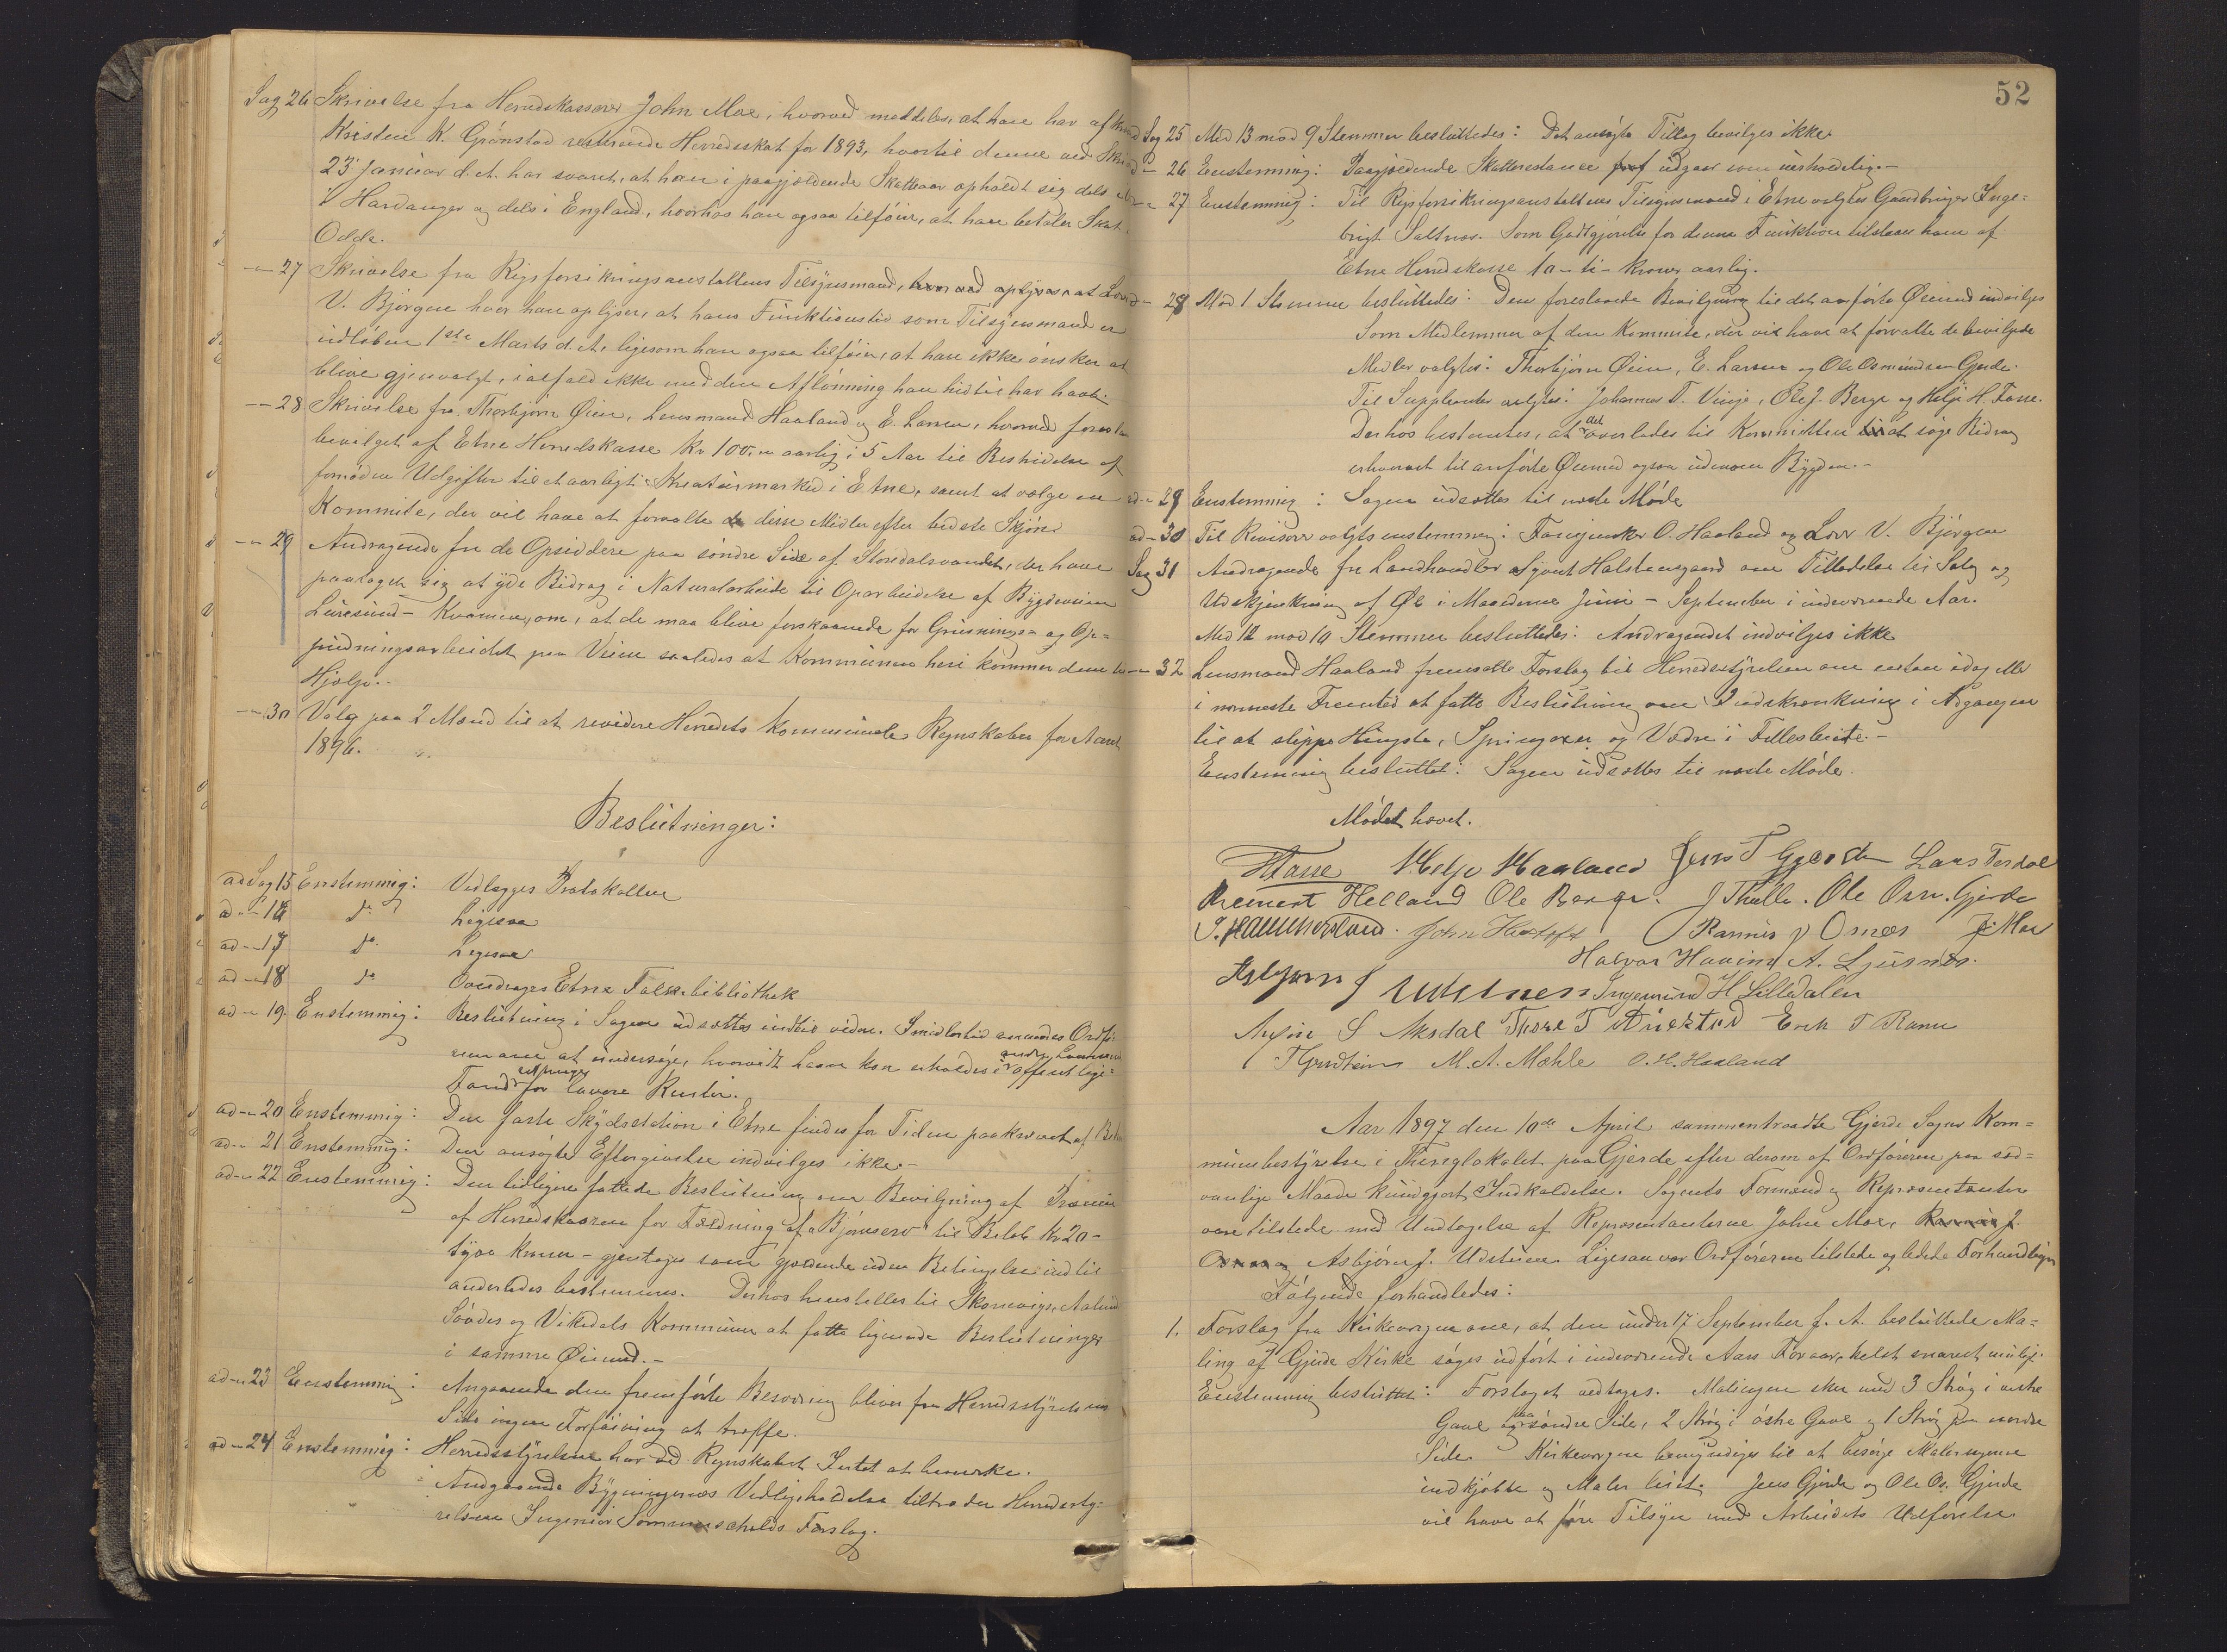 Sag 26 Skrivelse fra Herredskasserer John Moe, hvorved meddeles, at han har af
Kristen K. Grönstad resterende Herredsskat for 1893, hvortil denne ved
23 Januar d. A. har svaret, at han i paagjældende Skatteaar opholdt sig dels
i Hardanger og dels i England, hvorhos han ogsaa tilföier, at han betaler Skat
Odda.
-"- 27 Skrivelse fra Rigsforsikringsanstaltens Tilsynsmand,
V. Björgen hvor han oplyser, at hans Funktionstid som Tilsynsmand er
udlöben 1ste Marts d. A. ligesom han ogsaa tilföier, at han ikke önsker at
blive gjenvalgt, ialfald ikke med den Aflönning han hidtil har havt.
-"- 28 Skrivelse fra Thorbjörn Öien, Lensmand Haaland og E. Larsen, hvorved
bevilget af Etne Herredskasse Kr 100,00 aarlig i 5 Aar til Bestridelse af
fornödne Udgifter til et aarligt Kreatürmarked i Etne, samt at vælge en
Kommite, der vil have at forvalte disse Midler efter bedste Skjön.
-"- 29 Andragende fra de Opsiddere paa söndre Side af Stordalsvandet, der have
paataget sig at yde Bidrag i Naturalarbeide til Oparbeidelse af Bygdeveien
- Kvamen, om, at de maa blive forskaanede for Grüsnings- og Op-
rüdningsarbeidet paa Veien saaledes at Kommünen heri kommer dem til
Hjælp.
-"- 30 Valg paa 2 Mænd til at revidere Herredets kommunale Regnskaber for Aaret
1896.
Beslutninger:
ad Sag 15 Enstemmig: Vedlægges Protokollen
ad -"- 16 do Ligesaa
ad -"- 17 do Ligesaa
ad -"- 18 do Overdrages Etne Folkebibliothek
ad -"- 19 Enstemmig: Beslutning i Sagen udsættes indtil videre. Imidlertid anmodes Ordfö-
reren om at undersöge, hvorvidt Laan kan erholdes i andre offentlige
Fond for lavere Renter.
ad -"- 20 Enstemmig: Den faste Skydsstation i Etne findes for Tiden paakrævet af
ad -"- 21 Enstemmig: Den ansögte Eftergivelse indvilges ikke.-
ad -"- 22 Enstemmig: Den tidligere fattede Beslutning om Bevilgning af Præmie
af Herredskassen for Fældning af "Bjönnerov" til Belöb Kr 20 -
tyve Kroner - gjentages som gjældende uden Betingelse indtil
anderledes bestemmes. Derhos henstilles til Skonevigs,
Söndes og Vikedals Kommuner at fatte lignende Beslutninger
i samme Öiemed.-
ad -"- 23 Enstemmig: Angaaende den fremförte Besværing bliver fra Herredsstyrelsens
Side ingen Forföining at træffe.
ad -"- 24 Enstemmig: Herredsstyrelsen har ved Regnskabet Intet at bemærke.
Angaaende Bygningernes Vedligeholdelse tiltræder Herredssty-
relsen Ingeniör Sommerschilds Forslag.
52
Sag 25 Med 13 mod 9 Stemmer besluttedes: Det ansögte Tillæg bevilges ikke.
-"- 26 Enstemmig: Paagjældende Skatterestance udgaar som uerholdelig.-
-"- 27 Enstemmig: Til Rigsforsikringsanstaltens Tilsynsmand i Etne valgtes Gaardbruger Inge-
brigt Saltnes. Som Godtgjörelse for denne Funktion tilstaaes ham af
Etne Herredskasse 10 - ti - Kroner aarlig.
-"- 28 Mod 1 Stemme besluttedes: Den foreslaaede Bevilgning til det anförte Öiemed indvilges
Som Medlemmer af den Kommite, der vil have at forvalte de bevilgede
Midler valgtes: Thorbjörn Öien, E. Larsen og Ole Osmundsen Gjerde.
Til Suppleanter valgtes: Johannes T. Vinje, Ole J. Berge og Helje H. Fosse.
Derhos bestemtes, at det overlades til Kommitteen at söge Bidrag
erhvervet til anförte Öiemed ogsaa udenom Bygden.-
ad -"- 29 Enstemmig: Sagen udsættes til næste Möde
ad -"- 30 Til Revisorer valgtes enstemmig: Fanejunker O. Haaland og Lars V. Björgen
Sag 31 Andragende fra Landhandler Sjovat Halstensgaard om Tilladelse til Salg og
Udskjænkning af Öl i Maanederne Juni - September i indeværende Aar.
Med 12 mod 10 Stemmer besluttedes: Andragendet indvilges ikke
-"- 32 Lensmand Haaland fremsatte Forslag til Herredsstyrelsen om enten idag eller
i nærmeste Fremtid at fatte Beslutning om Indskrænkning i Adgangen
til at slippe Hingste, Springoxer og Vædre i Fællesbeite.-
Enstemmig besluttet: Sagen udsættes til næste Möde.
Mödet hævet.
HFosse Helje Haaland Jens T Gjerde Lars Tesdal
Reinert Helland Ole Berge. J Thulle. Ole Osm. Gjerde
J. Hammersland. John Hustoft Rasmus J Osnes J. Moe
Halvor Haaind A. Ljusnes.
Asbjörn J Udstuen Ingemund H Lilledalen
S Aksdal Tore T Ænestad Erik T Ramn
T Grindheim M. A. Mæhle O. H. Haaland
Aar 1897 den 10de April sammentraadte Gjerde Sogns Kom-
munebestyrelse i Thinglokalet paa Gjerde efter derom af Ordföreren paa sæd-
vanlige Maade kundgjort Indkaldelse. Sognets Formænd og Repræsentanter
vare tilstede med Undtagelse af Repræsentanterne John Moe, Rasmus J.
Osnes og Asbjörn J. Udstuen. Ligesaa var Ordföreren tilstede og ledede Forhandlingen
Fölgende forhandledes:
1. Forslag fra Kirkeværgen om, at den under 17 September f. A. besluttede Ma-
ling af Gjerde Kirke söges udfört i indeværende Aars Foraar, helst snarest mulig.
Enstemmig besluttet: Forslaget vedtages. Malingen sker med 3 Strög i vestre
Gavl og paa söndre Side, 2 Strög i östre Gavl og 1 Strög paa nordre
Side. Kirkeværgen bemyndiges til at besörge Malersagerne
indkjöbte og Maler leiet. Jens Gjerde og Ole Os. Gjerde
vil have at före Tilsyn med Arbeidets Udförelse